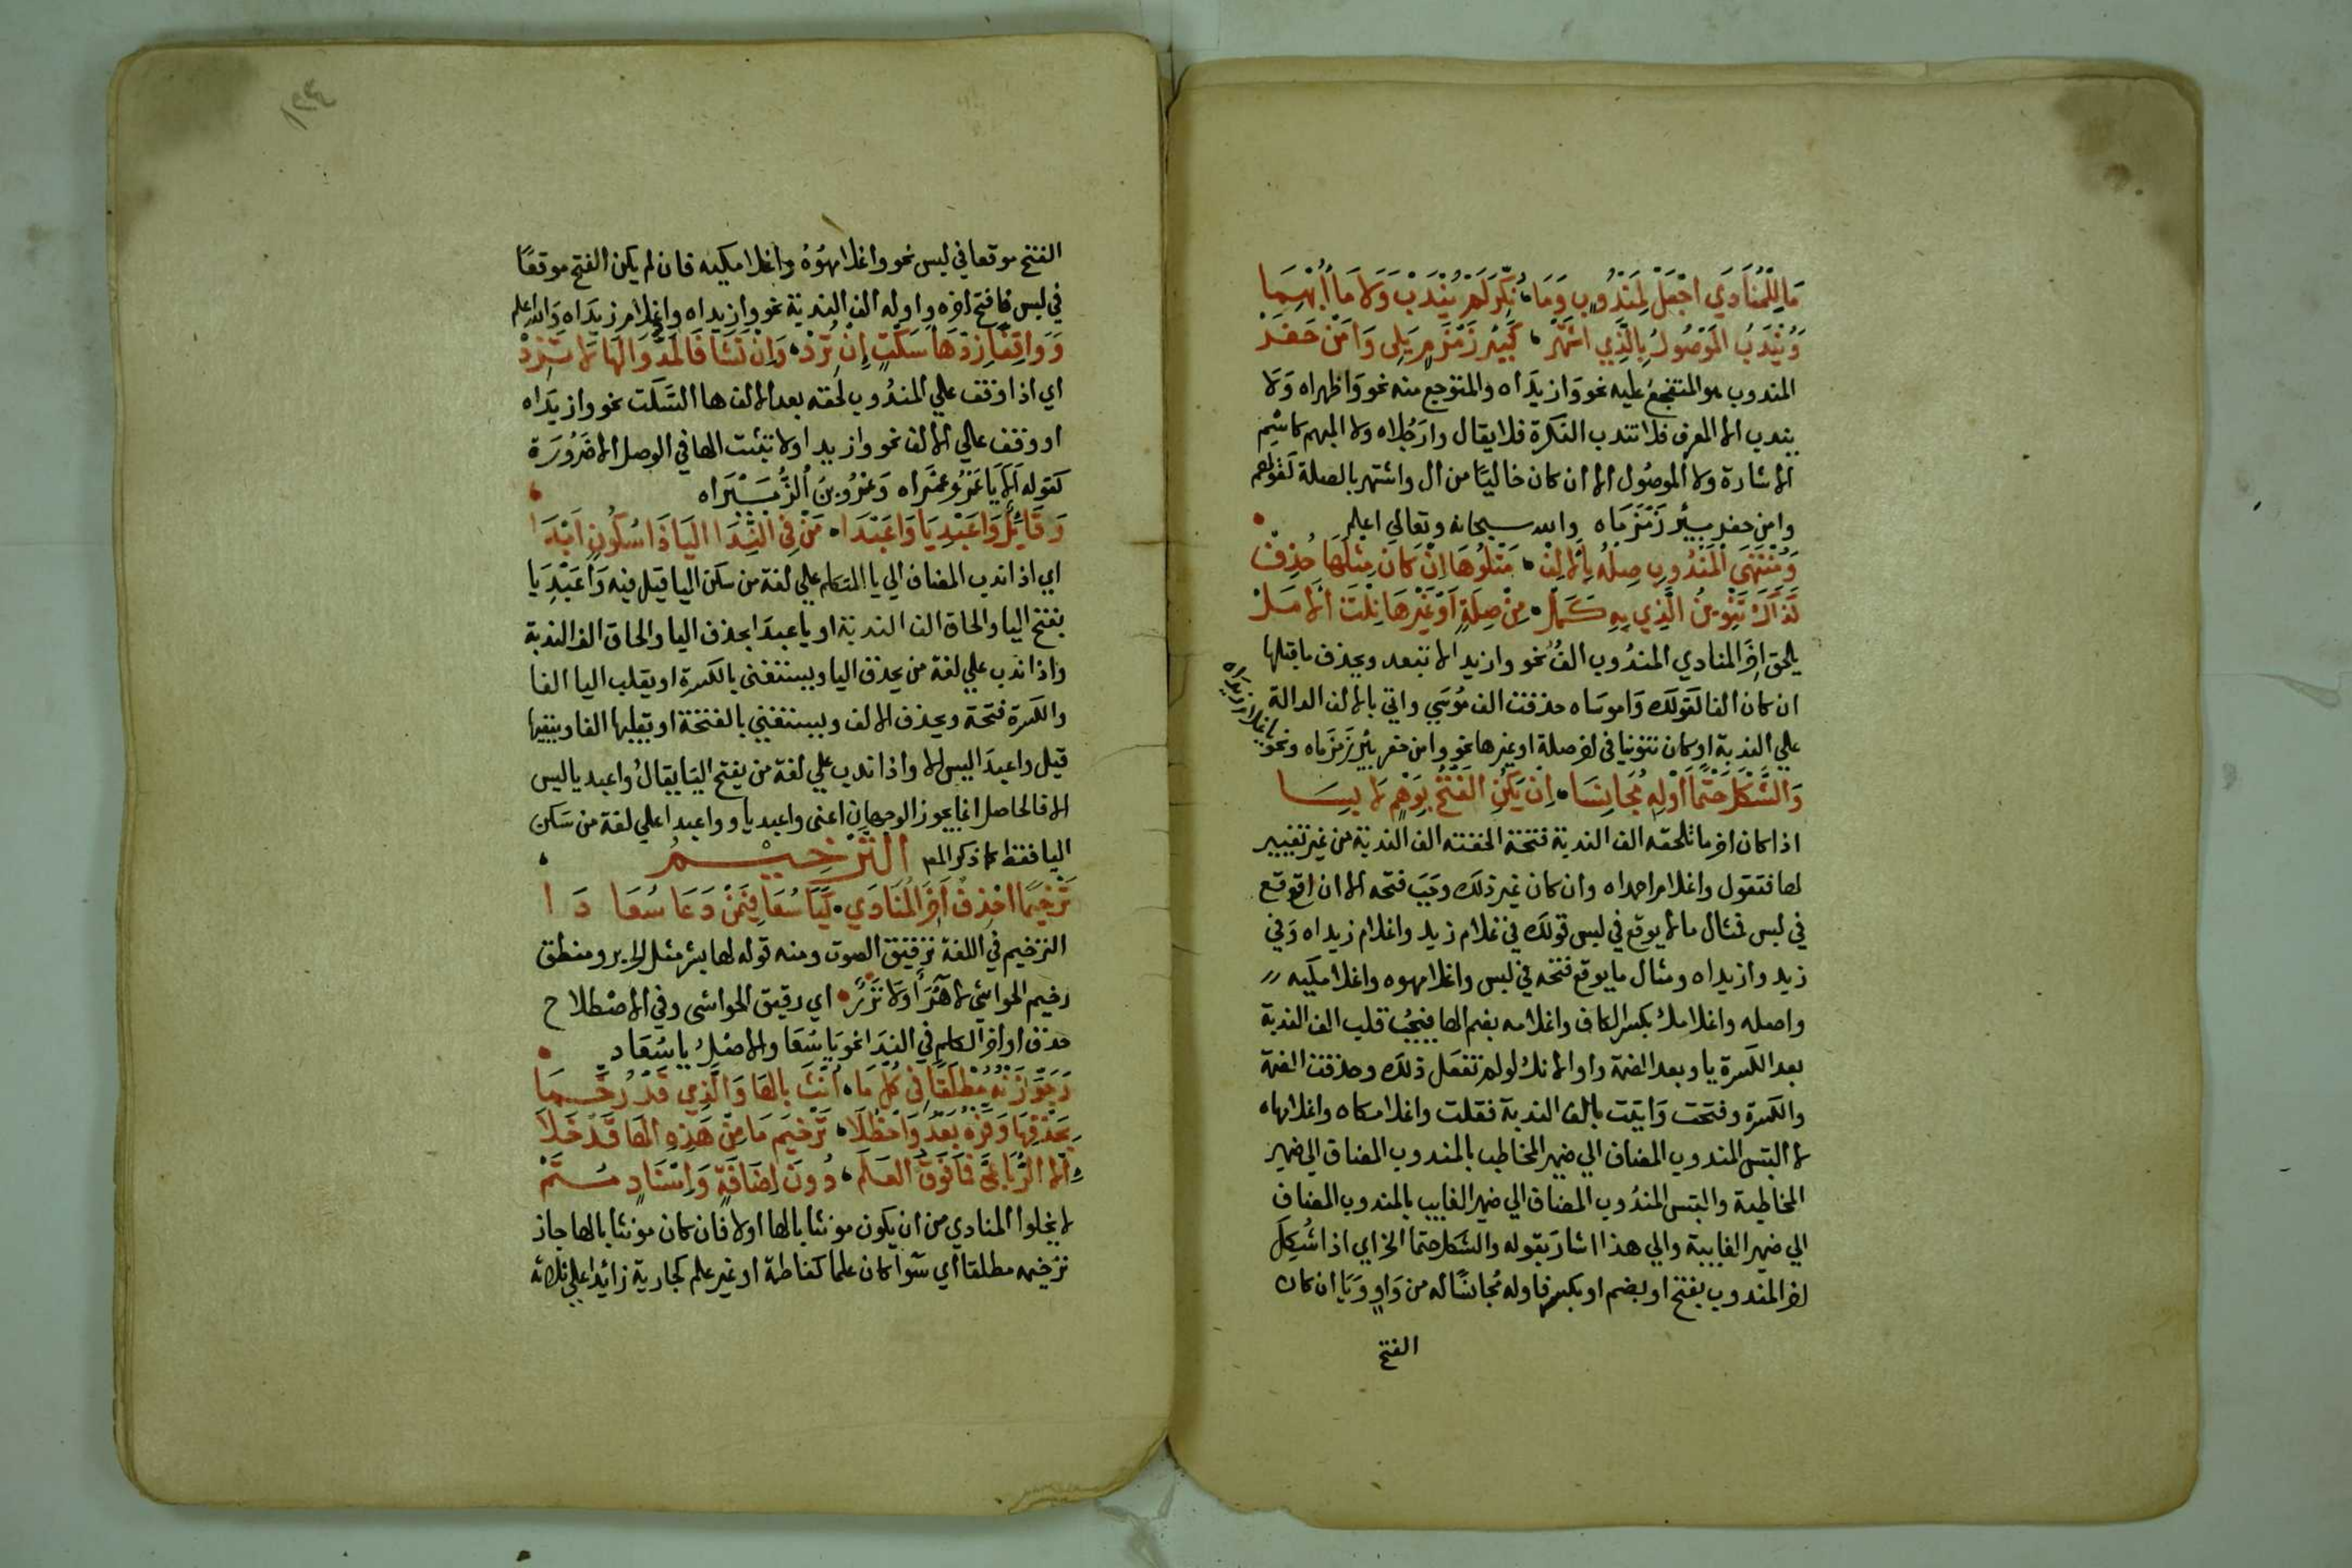 مَا لِلْمُنَادَي اجْعَلْ لِمَنْدُوبٍ وَمَا، نُكِّرَ لَمْ يُنْدَبْ وَلَا مَا أُبْهِمَا
وَيُنْدَبُ الْمَوْصُولُ بِالَّذِي اشْتَهَرْ، كَبِئْرَ زَمْزَمٍ يَلِي وَامَنْ حَفَرْ
المندوب هو المتفجع عليه نحو وازيداه والمتوجع منه نحو واظهراه ولا
يندب الا المعرفه فلا تندب النكرة فلا يقال وارجلاه ولا المبهم كاسم
الاشارة ولا الموصول الا ان كان خاليا من ال واشتهر بالصلة كقولهم
وامن حفر بئر زمزماه والله سبحانه وتعالي اعلم
وَمُنْتَهَي الْمَنْدُوبِ صِلْهُ بِالْاَلِفْ، مَتْلُوُّهَا اِنْ كَانَ مِثْلَهَا حُذِفْ
كَذَاكَ تَنْوِينُ الَّذِي بِهِ كَمَلْ، مِنْ صِلَةٍ اَوْ غَيْرِهَا نِلْتَ الْاَمَلْ
يلحق اخر المنادي المندوب الف نحو وازيدا لا تبعد ويحذف ما قبلها
ان كان الفا كقولك واموساه حذفت الف موسي واتي بالالف الدالة
علي الندبة او كان تنوينا في اخر صلة او غيرها نحو وامن حفر بئر زمزماه ونحو
ياغلام زيداه
وَالشَّكْلَ حَتْمًا اَوْلِهِ مُجَانِسَا، اِنْ يَكُنِ الْفَتْحُ بِوَهْمٍ لَابِسَا
اذا كان اخر ما تلحقه الف الندبة فتحة الحقته الف الندبة من غير تغيير
لها فتقول واغلام احمداه وان كان غير ذلك وجب فتحه الا ان اوقع
في لبس فمثال ما لا يوقع في لبس قولك في غلام زيد واغلام زيداه وفي
زيد وازيداه ومثال ما يوقع فتحه في لبس واغلامهوه واغلامكيه
واصله واغلامك بكسر الكاف واغلامه بضم الها فيجب قلب الف الندبة
بعد الكسرة يا وبعد الضمة واوا لانك لو لم تفعل ذلك وحذفت الضمة
والكسرة وفتحت واتيت بالف الندبة فقلت واغلامكاه واغلامهاه
لالتبس المندوب المضاف الي ضمير المخاطب بالمندوب المضاف الي ضمير
المخاطبة والتبس المندوب المضاف الي ضمير الغايب بالمندوب المضاف
الي ضمير الغايبة والي هذا اشار بقوله والشكل حتما الخ اي اذا شكل
اخر المندوب بفتح او بضم او بكسر فاوله مجانسا له من واو ويا ان كان
الفتح
الفتح موقعا في لبس نحو واغلامهوه واغلامكيه فان لم يكن الفتح موقعا
في لبس فافتح اخره واوله الف الندبة نحو وازيداه واغلام زيداه والله اعلم
وَوَاقِفًا زِدْ هَاءَ سَكْتٍ اِنْ تُرِدْ، وَاِنْ تَشَا فَالْمَدَّ وَالْهَا لَا تَزِدْ
اي اذا وقف علي المندوب لحقه بعد الالف ها السكت نحو وازيداه
او وقف علي الالف نحو وازيدا ولا تثبت الها في الوصل الا ضرورة
كقوله الا يا عمرو عمراه وعمرو بن الزبيراه
وَقَائِلٌ وَاعَبْدِيَا وَاعَبْدَا، مَنْ فِي النِّدَا الْيَا ذَا سُكُونٍ اَبْدَا
اي اذا ندب المضاف الي يا المتكلم علي لغة من سكن اليا قيل فيه واعبديا
بفتح اليا والحاق الف الندبة او يا عبدا بحذف اليا والحاق الف الندبة
واذا ندب علي لغة من يحذف اليا ويستغني بالكسرة او يقلب اليا الفا
والكسرة فتحة ويحذف الالف ويستغني بالفتحة او يقلبها الفا ويبقيها
قيل واعبدا ليس الا واذا ندب علي لغة من يفتح اليا يقال واعبديا ليس
الا فالحاصل انما يجوز الوجهان اعني واعبديا وواعبدا علي لغة من سكن
اليا فقط كما ذكر المص الترخيم
تَرْخِيمًا احْذِفْ اَخِرَ الْمُنَادَي، كَيَا سُعَا فِيمَنْ دَعَا سُعَادَا
الترخيم في اللغة ترقيق الصوت ومنه قوله لها بشر مثل الحرير ومنطق
رخيم الحواشي لا هرأ ولا نزر اي رقيق الحواشي وفي الاصطلاح
حذف اواخر الكلم في الندا نحو يا سعا والاصل يا سعاد
وَجَوِّزَنْهُ مُطْلَقًا فِي كُلِّ مَا، اُنِّثَ بِالْهَا وَالَّذِي قَدْ رُخِّمَا
بِحَذْفِهَا وَفِّرْهُ بَعْدُ وَاحْظُلَا، تَرْخِيمَ مَا مِنْ هَذِهِ الْهَا قَدْ خَلَا
اِلَّا الرُّبَاعِيَّ فَمَا فَوْقُ الْعَلَمْ، دُونَ اِضَافَةٍ وَاِسْنَادٍ مُتَمْ
لا يخلوا المنادي من ان يكون مونثا بالها اولا فان كان مونثا بالها جاز
ترخيمه مطلقا اي سوا كان علما كفاطمة او غير علم كجارية زائدا علي ثلاثة